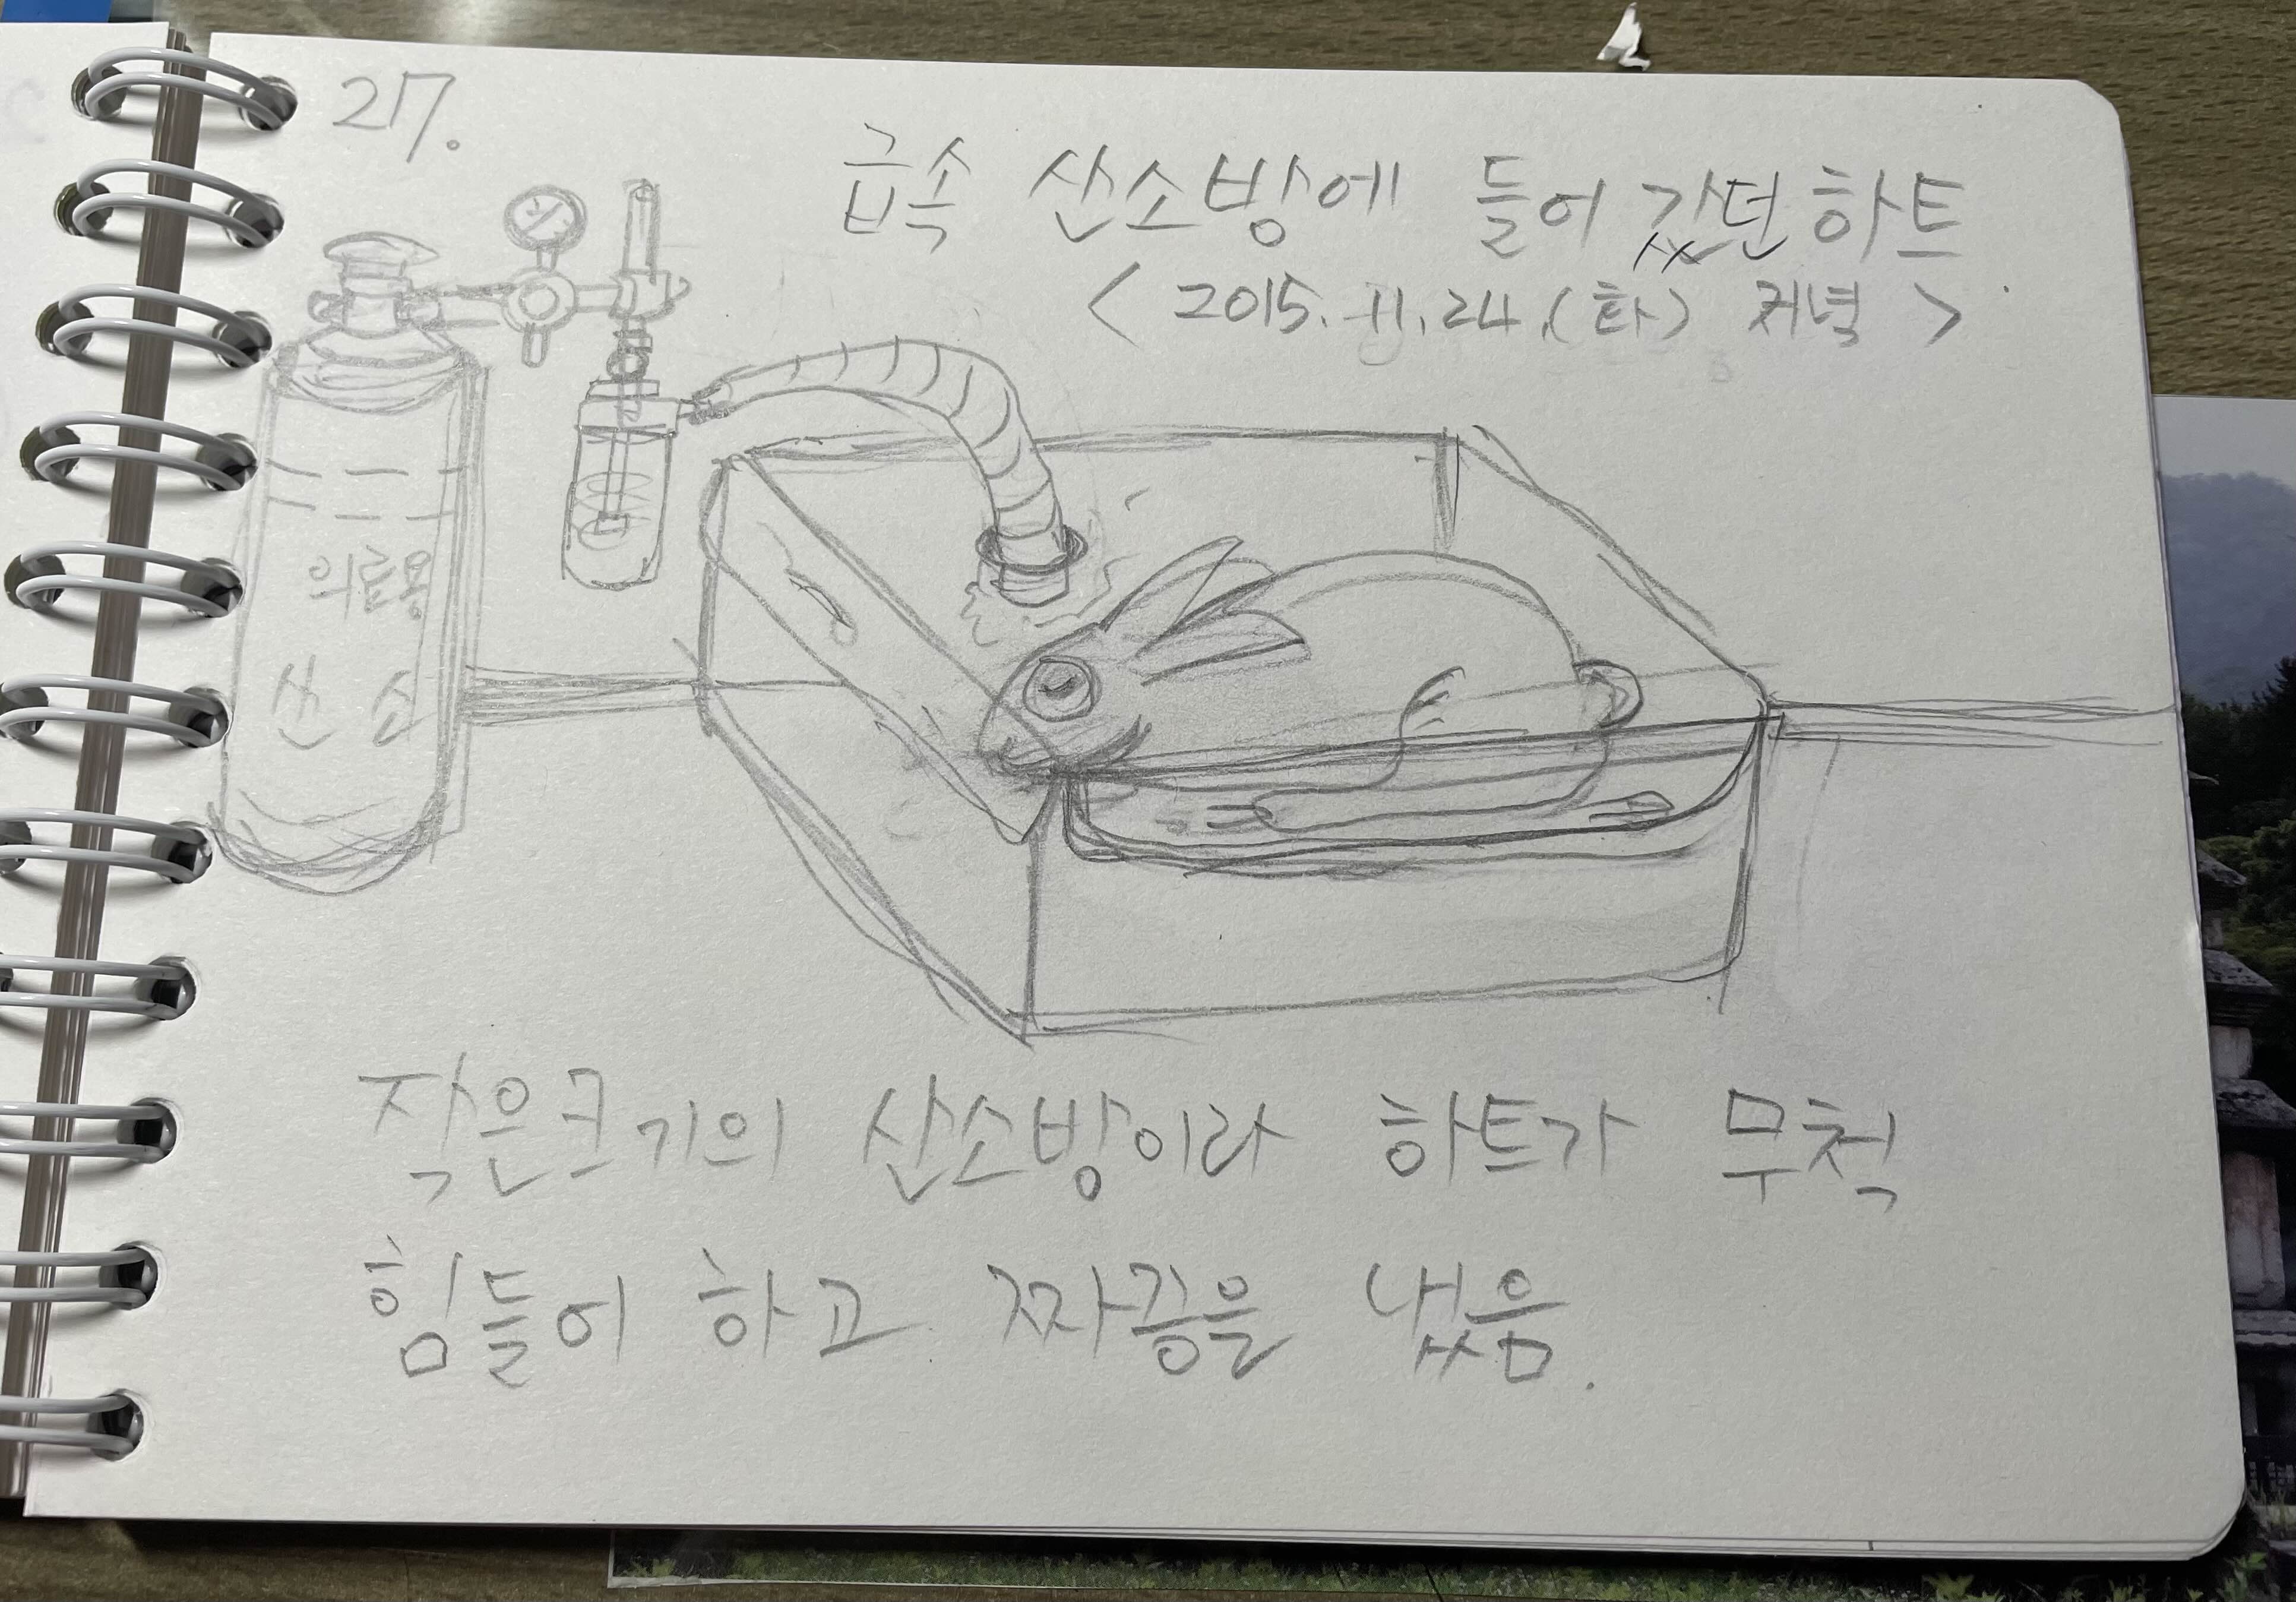 27.
급속 산소방에 들어 갔던 하트
< 2015. 11. 24. (화) 저녁 >
의료용
산 소
작은크기의 산소방이라 하트가 무척
힘들어 하고 짜증을 냈음.